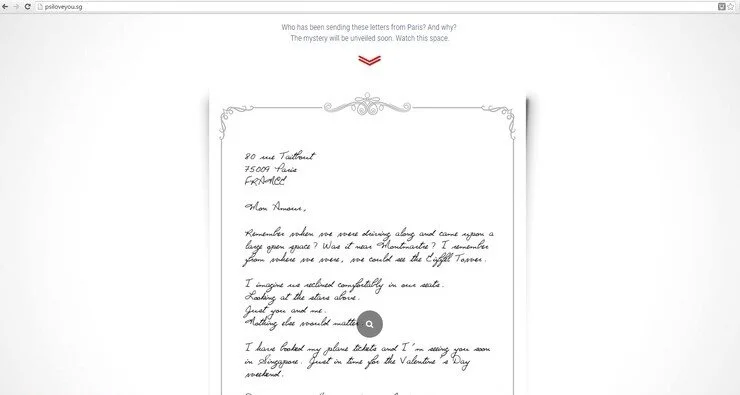 psiloveyou.sg
Who has been sending these letters from Paris? And why?
The mystery will be unveiled soon. Watch this space.
80 rue Taitbout
75009 Paris
FRANCE
Mon Amour,
Remember when we were driving along and came upon a
large open space? Was it near Montmartre? I remember
from where we were, we could see the Eiffel Tower.
I imagine us reclined comfortably in our seats.
Looking at the stars above.
Just you and me.
Nothing else would matter.
I have booked my plane tickets and I'm seeing you soon
in Singapore. Just in time for the Valentine's Day
weekend.